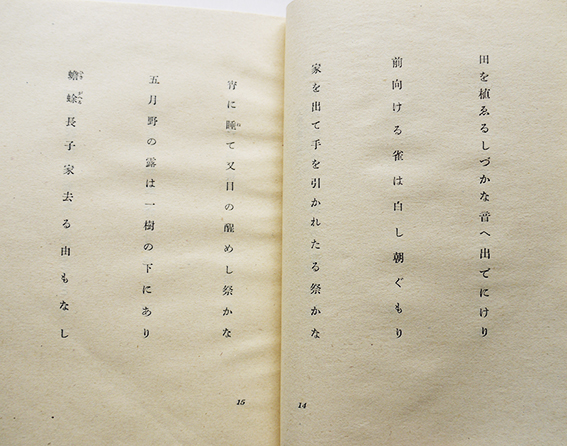 田を植ゑるしづかな音へ出でにけり
前向ける雀は白し朝ぐもり
家を出て手を引かれたる祭かな
14
宵に睡て又目の醒めし祭かな
五月野の露は一樹の下にあり
蟾蜍長子家去る由もなし
15